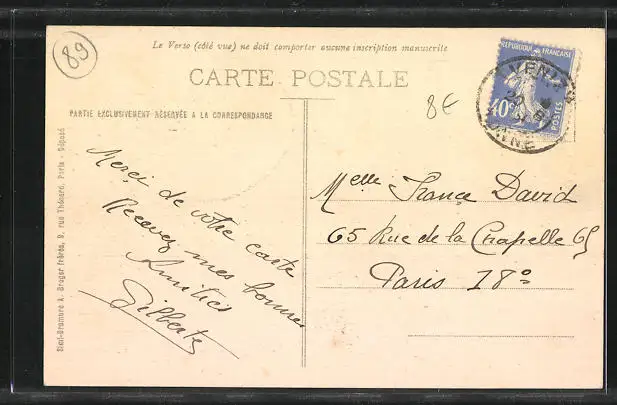 89
Le Verso (côté vue) ne doit comporter aucune inscription manuscrite
CARTE POSTALE
8€
PARTIE EXCLUSIVEMENT RÉSERVÉE A LA CORRESPONDANCE
RÉPUBLIQUE FRANÇAISE
40c
POSTES
Merci de votre carte
Recevez mes bonnes
Amitiés
Gilberte
Melle France David
65 Rue de la Chapelle 65
Paris 18°
Sten-Bromure A. Breger frères, 9, rue Thénard, Paris - Déposé